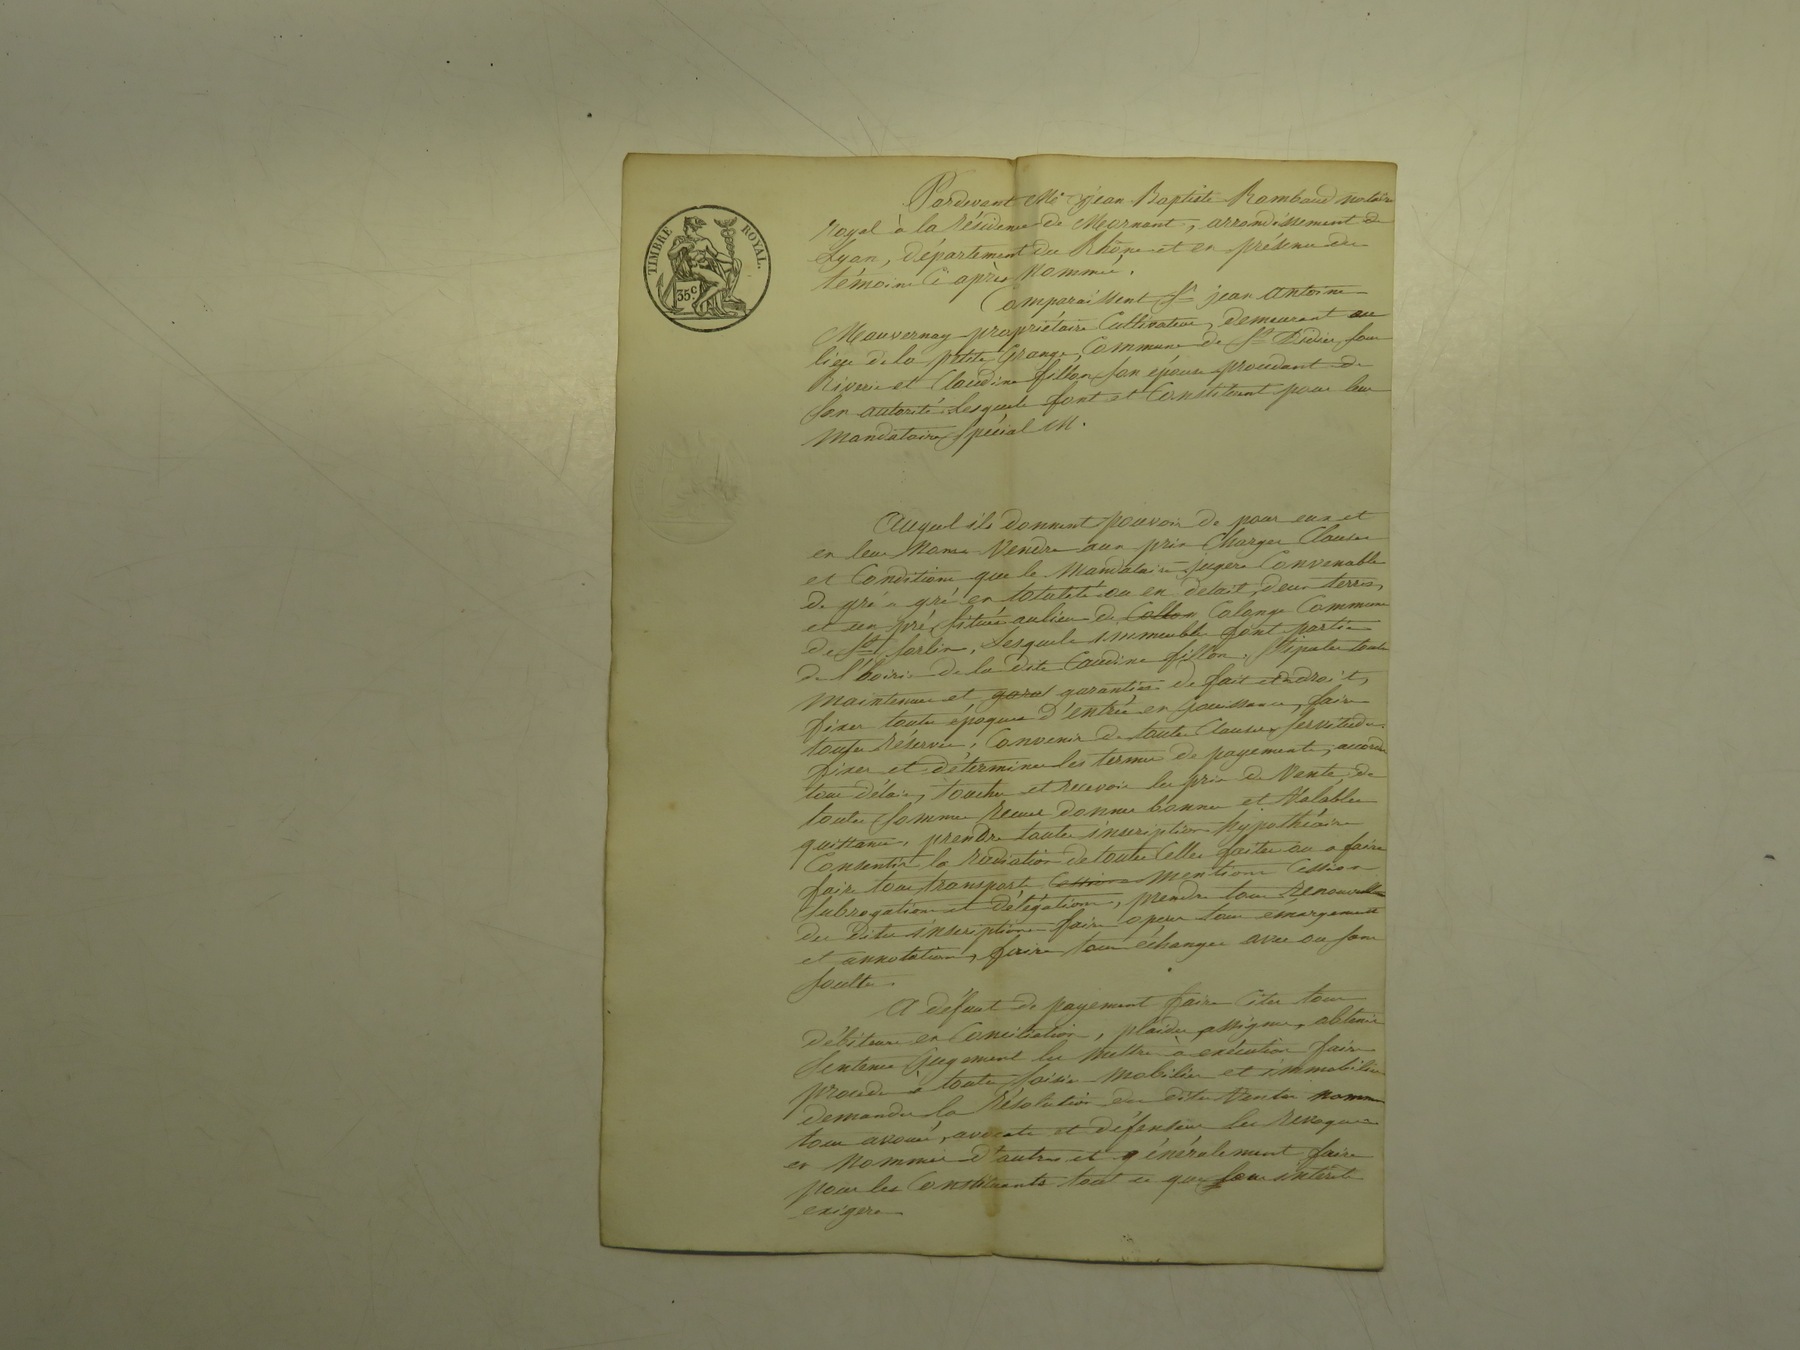 TIMBRE ROYAL.
35c.
Pardevant Me jean Baptiste Rambaud notaire
royal à la résidence de Mornant, arrondissement de
Lyon, département du Rhône et en présence des
témoins ci après nommés.
Comparaissent Sr jean antoine
Mauvernay propriétaire Cultivateur, demeurant au
lieu de la petite Grange, Commune de St Didier sous
Riverie et Claudine fillon son épouse procédant de
son autorité lesquels font et Constituent pour leur
Mandataire Spécial M.
Auquel ils donnent pouvoir de pour eux et
en leur Nom Vendre aux prix Charges Clauses
et Conditions que le Mandataire jugera Convenable
de gré a gré en totalité ou en detail, deux terres,
et un pré situés au lieu de Collon Colonge Commune
de St Sorlin, Lesquels immeubles font partie
de l'hoirie de la dite Caudine fillon. Stipuler toute
Maintenue et garan garanties de fait et de droit,
fixer toute époque d'entrée en jouissance, faire
toutes réserves, Convenir de toutes Clauses Servitudes
fixer et déterminer les termes de payements, accorder
tous délais, toucher et recevoir les prix de Vente, de
toutes Sommes reçues donner bonnes et Valables
quittances, prendre toutes inscriptions hypothécaires
Consentir la radiation de toutes Celles faites ou a faire
faire tous transports Cessions Mentions Cession
Subrogations et délégations, prendre tous Renouvelle
des dites inscriptions faire opérer tous émargements
et annotations, faire tous échanges avec ou sans
soultes.
A défaut de payement faire Citer tous
débiteurs en Conciliation, plaider, assigner, obtenir
Sentences Jugements les mettre à exécution faire
procéder à toutes Saisies Mobilières et immobilières
demander la Résolution des dites Ventes nommer
tous avoués, avocats et défenseurs les révoquer
en Nommer d'autres et généralement faire
pour les Constituants tout ce que leurs intérêts
exigera